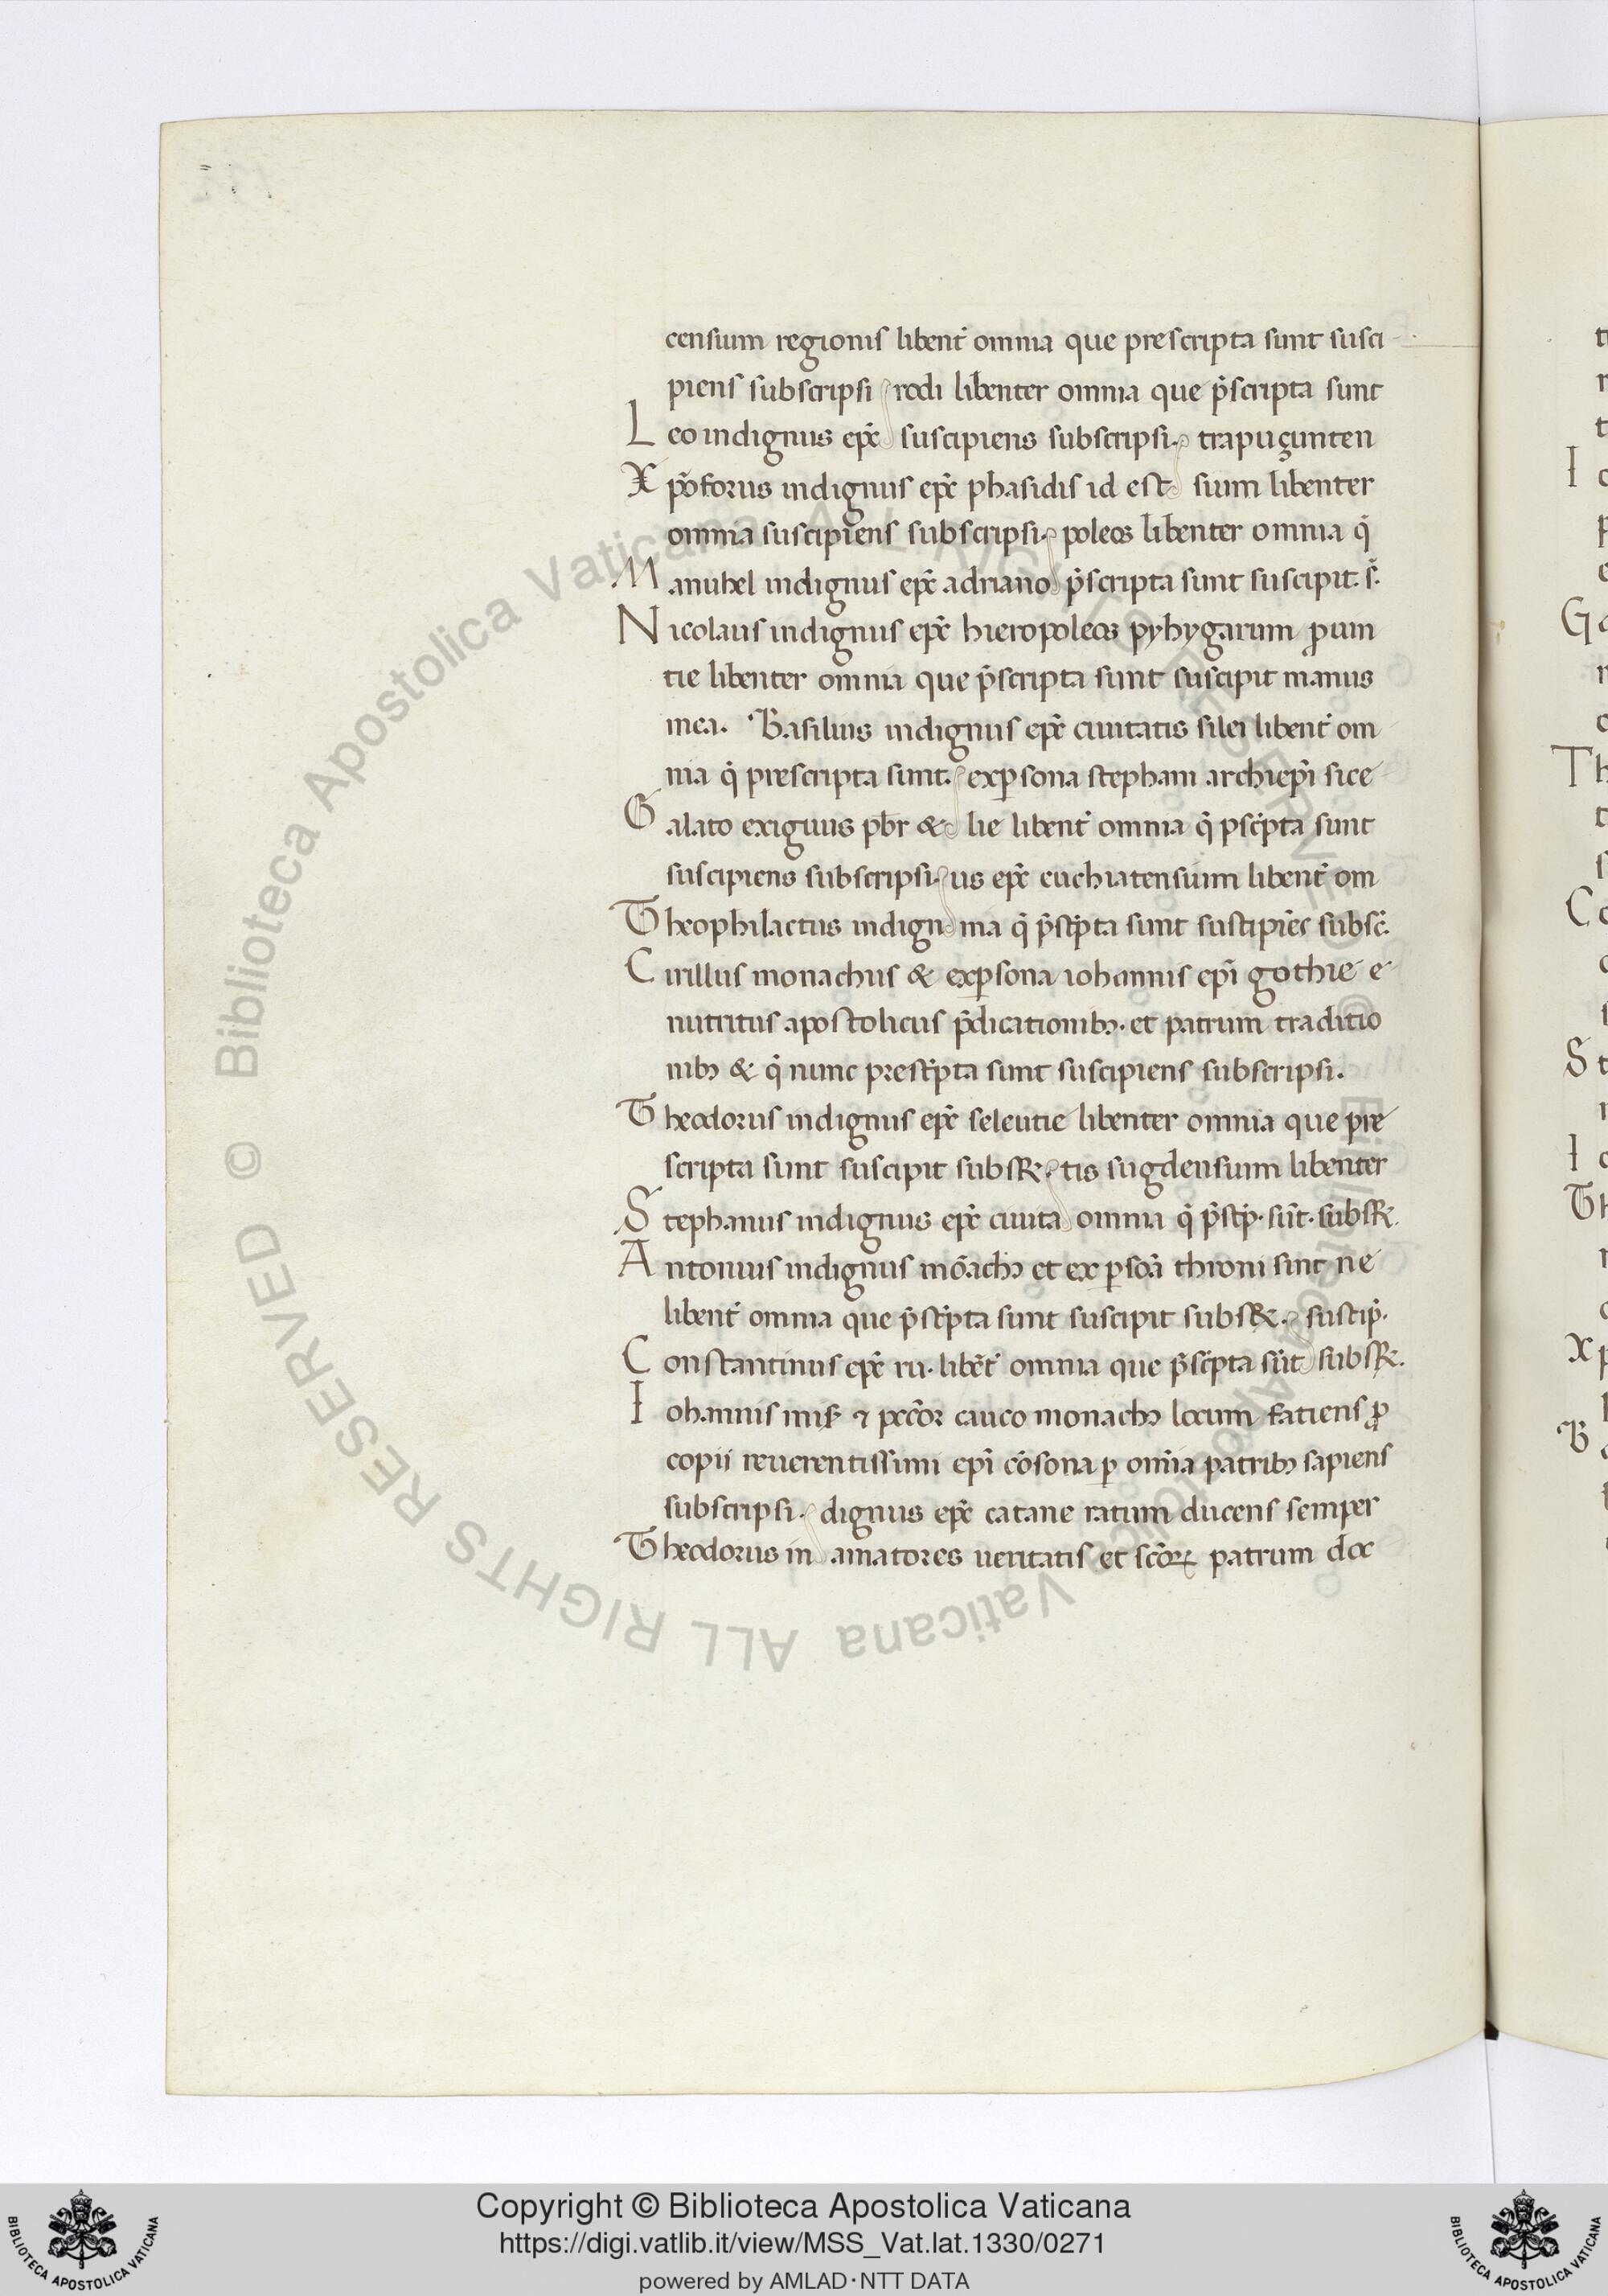 censium regionis libent̃ omnia que prescripta sunt susci
piens subscripsi rodi libenter omnia que p̃scripta sunt
Leo indignus ep̃c suscipiens subscripsi. trapuçunten
Xp̃oforus indignus ep̃c phasidis id est sium libenter
omnia suscipiens subscripsi. poleos libenter omnia q̃
Manuhel indignus ep̃c adriano p̃scripta sunt suscipit. s̃.
Nicolaus indignus ep̃c hieropoleos pyhygarum ꝓuin
tie libenter omnia que p̃scripta sunt suscipit manus
mea. Basilius indignus ep̃c ciuitatis silei libent̃ om
nia q̃ prescripta sunt. exꝑsona stephani archiep̃i sice
Galato exiguus pbr̃ & lie libent̃ omnia q̃ psc̃pta sunt
suscipiens subscripsi. us ep̃c euchiatensium libent̃ om
Theophilactus indign nia q̃ p̃sc̃pta sunt suscipiẽs subsc̃.
Cirillus monachus & exꝑsona iohannis ep̃i gothie e
nutritus apostolicus p̃dicationibꝫ. et patrum traditio
nibꝫ & q̃ nunc presc̃pta sunt suscipiens subscripsi.
Theodorus indignus ep̃c seleutie libenter omnia que pre
scripta sunt suscipit subsꝶ. tis sugdensium libenter
Stephanus indignus ep̃c ciuita omnia q̃ p̃sc̃p. sũt. subsꝶ.
Antonius indignus mõachꝫ et ex ꝑsoã throni sint ne
libent̃ omnia que p̃sc̃pta sunt suscipit subsꝶ. suscip̃.
Constantinus ep̃c ru. libẽt̃ omnia que p̃sc̃pta sũt subsꝶ.
Iohannis ⁊ pc̃cor monachꝫ locum fatiens ꝓ
copii reuerentissimi ep̃i cõsona ꝑ om̃ia patribꝫ sapiens
subscripsi. dignus ep̃c catane ratum ducens semper
Theodorus in amatores ueritatis et sc̃orꝝ patrum doc
© Biblioteca Apostolica Vaticana ALL RIGHTS RESERVED © Biblioteca Apostolica Vaticana ALL RIGHTS RESERVED
Copyright © Biblioteca Apostolica Vaticana
https://digi.vatlib.it/view/MSS_Vat.lat.1330/0271
powered by AMLAD·NTT DATA
BIBLIOTECA APOSTOLICA VATICANA
BIBLIOTECA APOSTOLICA VATICANA